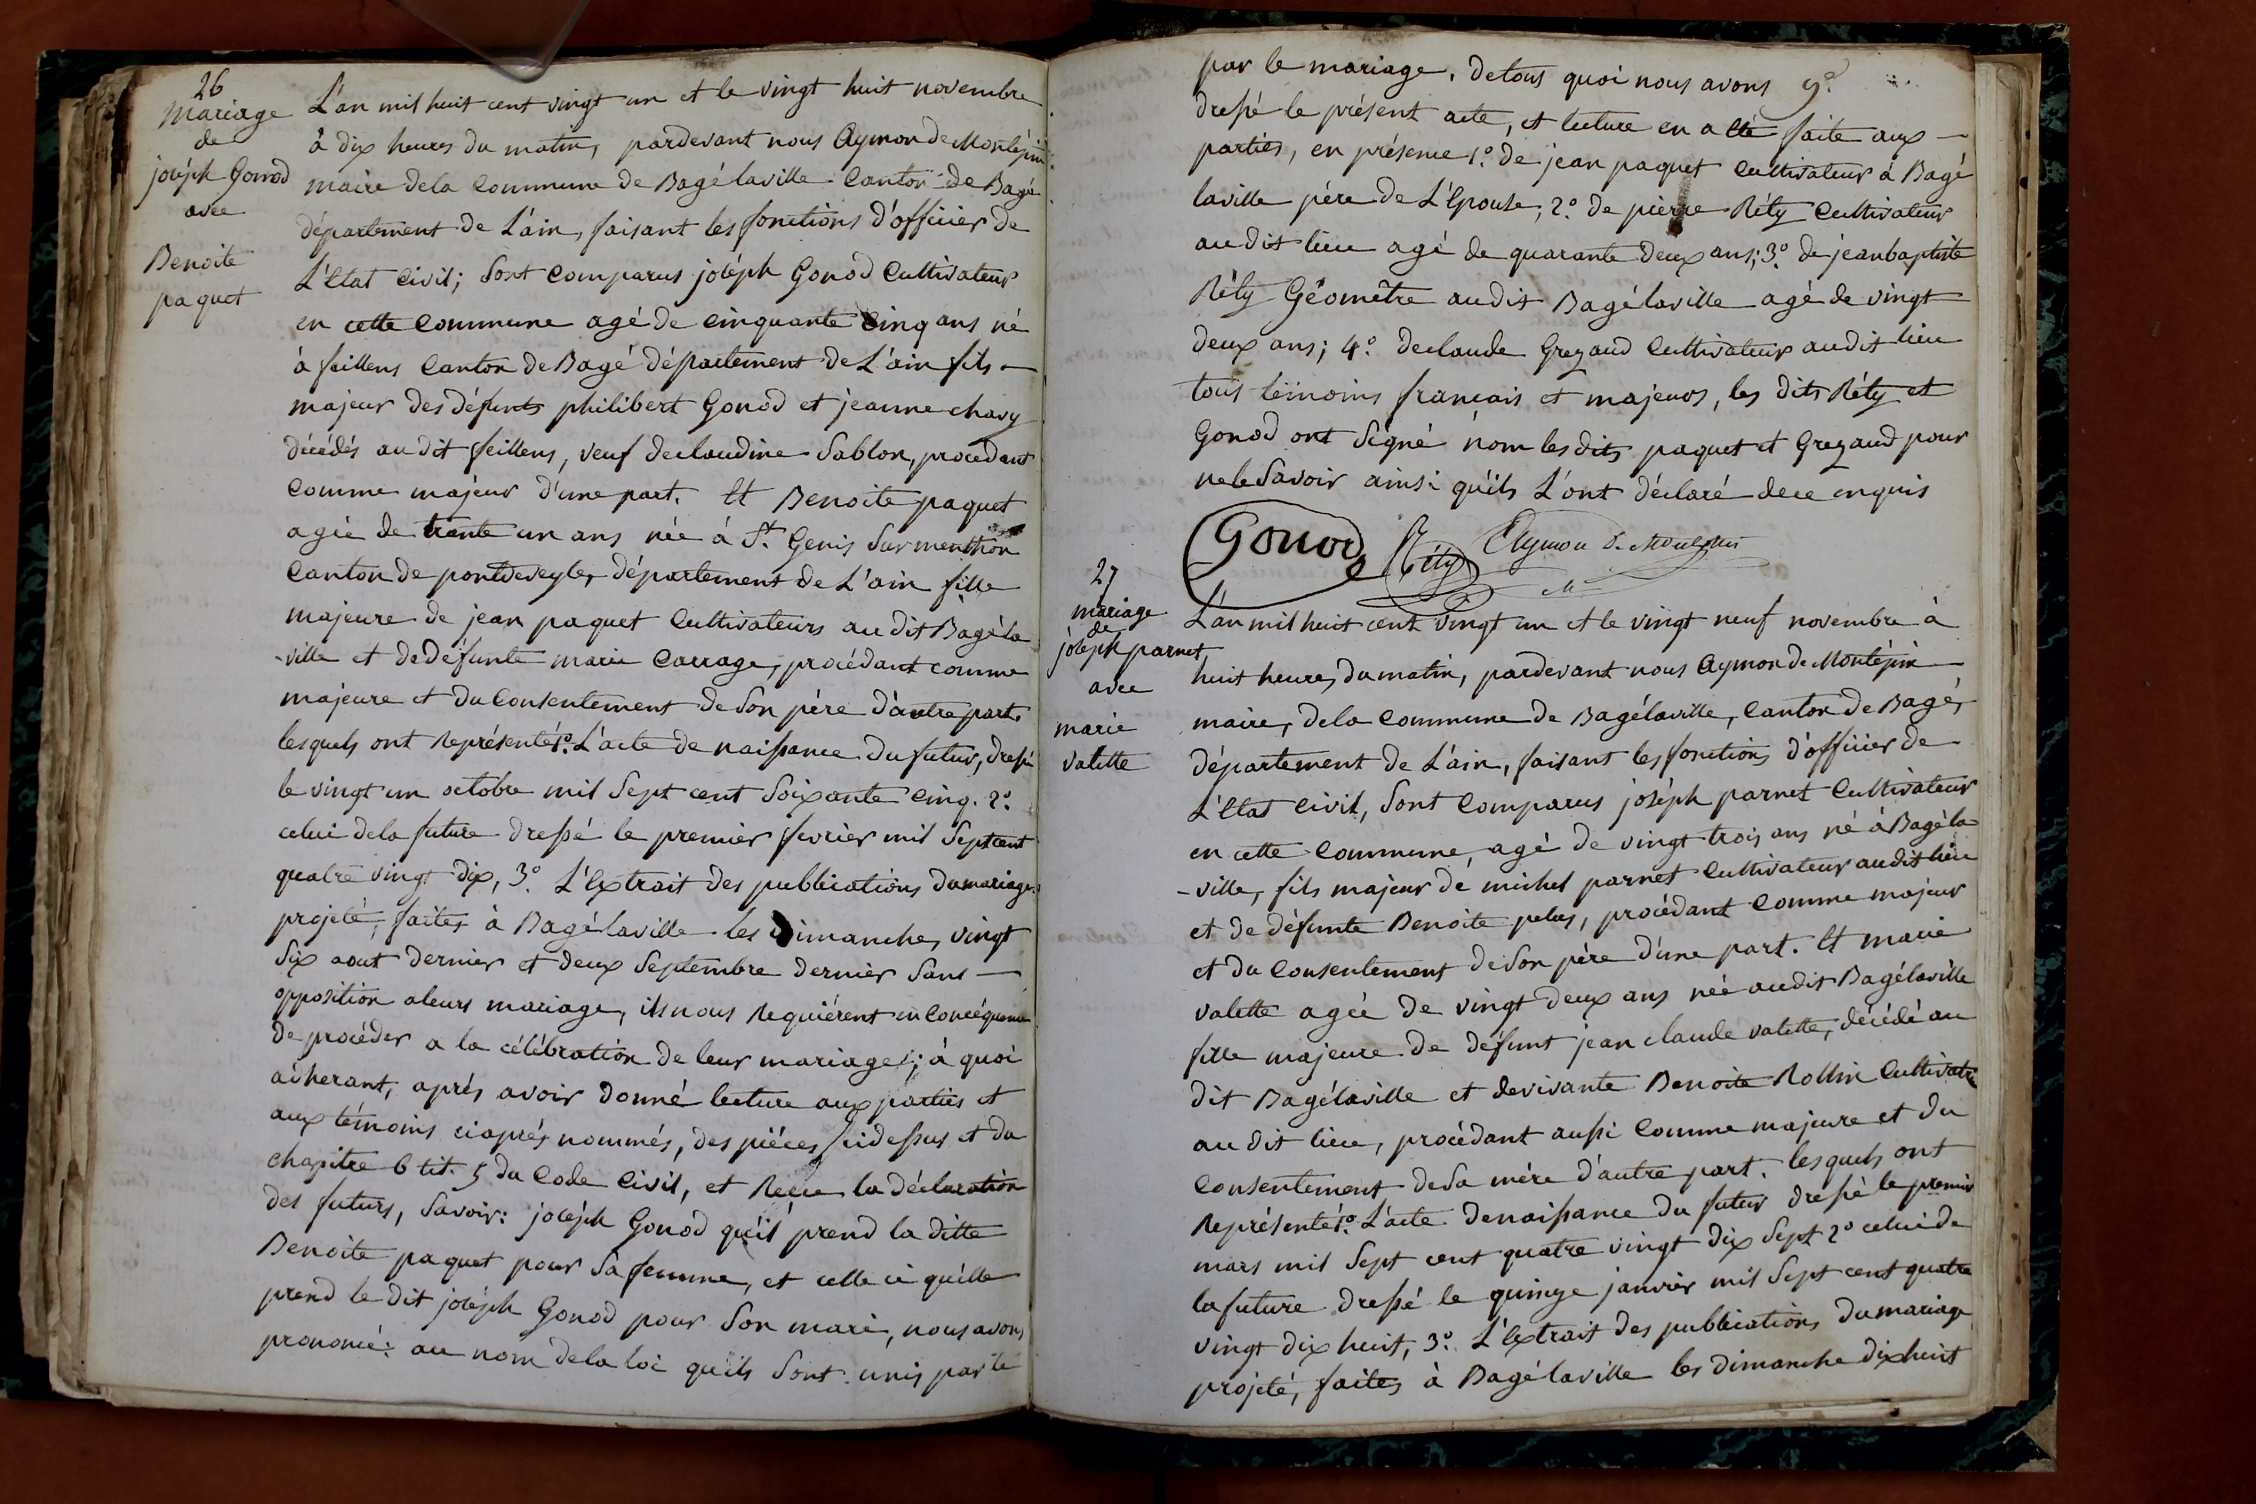 26
Mariage
de
joséph Gonod
avec
Benoite
paquet
L'an mil huit cent vingt un et le vingt huit novembre
à dix heures du matin, pardevant nous Aymon de Montépin
maire dela Commune de Bagélaville Canton de Bagé
département de L'ain, faisant les fonctions d'officier de
L'Etat Civil; Sont Comparus joséph Gonod Cultivateur
en cette Commune agé de cinquante Cinq ans né
à feillens Canton de Bagé département de L'ain fils
majeur des défunts philibert Gonod et jeanne chavy
décédés au dit feillens, veuf de claudine Sablon, procédant
Comme majeur d'une part. Et Benoite paquet
agée de trente un ans née à St. Genis Sur menthon
Canton de pontdeveyle, département de L'ain fille
majeure de jean paquet Cultivateurs au dit Bagéla
-ville et de défunte marie Carrage, procédant comme
majeure et du Consentement de Son père d'autre part.
lesquels ont Représenté 1º. L'acte de naissance du futur, dressé
le vingt un octobre mil Sept cent Soixante Cinq. 2º.
celui dela future dressé le premier fevrier mil Septcent
quatre vingt dix, 3º. L'Extrait des publications du mariage
projeté, faites à Bagélaville les Dimanche, vingt
Six aout dernier et deux Septembre dernier Sans
opposition a leurs mariage, ils nous Requiérent en Conséquence
de procéder a la célébration de leur mariage; à quoi
adherant, aprés avoir donné lecture aux parties et
aux témoins ci aprés nommés, des piéces ci dessus et du
chapitre 6 tit. 5 du Code Civil, et Recu la déclaration
des futurs, Savoir: joséph Gonod qu'il prend la ditte
Benoite paquet pour Sa femme, et celle ci qu'elle
prend le dit joséph Gonod pour Son mari, nous avons
prononcé: au nom dela loi qu'ils Sont unis par le
par le mariage. de tous quoi nous avons
dressé le présent acte, et lecture en a été faite aux
parties, en présence 1º. de jean paquet Cultivateur à Bagé
laville père de L'Epouse, 2º. de pierre Réty Cultivateur
au dit lieu agé de quarante deux ans; 3º. de jean baptiste
Réty Géomètre audit Bagélaville agé de vingt
deux ans; 4º. de claude Greyaud Cultivateur au dit lieu
tous témoins francais et majeurs, les dits Réty et
Gonod ont Signé nom les dits paquet et Greyaud pour
ne le Savoir ainsi qu'ils L'ont déclaré de ce enquis
Gonod Réty Aymon De Montépin
27
mariage
de
joséph parnet
avec
marie
valette
L'an mil huit cent vingt un et le vingt neuf novembre à
huit heures du matin, pardevant nous Aymon de Montépin
maire, dela Commune de Bagélaville, Canton de Bagé,
département de L'ain, faisant les fonctions d'officier de
L'Etat Civil, Sont Comparus joséph parnet Cultivateur
en cette Commune, agé de vingt trois ans né à Bagéla
-ville, fils majeur de michel parnet Cultivateur au dit lieu
et de défunte Benoite pelus, procédant Comme majeur
et du Consentement de Son père d'une part. Et marie
valette agée de vingt deux ans née audit Bagélaville
fille majeure de défunt jean claude valette, décédé au
dit Bagélaville et de vivante Benoite Rollin Cultivatrice
au dit lieu, procédant aussi Comme majeure et du
Consentement de Sa mère d'autre part. lesquels ont
Représenté 1º. L'acte de naissance du futur dressé le premier
mars mil Sept cent quatre vingt dix Sept 2º celui de
la future dressé le quinze janvier mil Sept cent quatre
vingt dix huit, 3º. L'Extrait des publications du mariage
projeté, faites à Bagélaville les dimanche dix huit